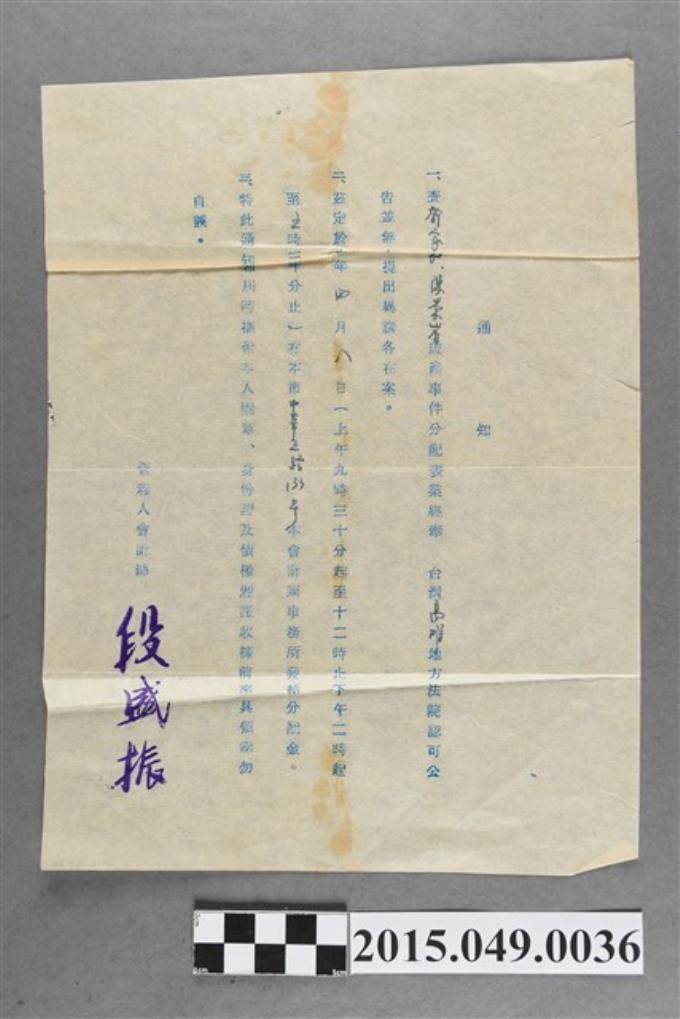 通知
一、查 破產事件分配表業經奉 台灣高雄地方法院認可公
告並無人提出異議各在案。
二、茲定於 年四月八日（上午九時三十分起至十二時止下午二時起
至五時三十分止）在本市中華三路 號本會計師事務所發給分配金。
三、特此通知屆時攜帶本人圖章、身份證及債權憑証收據前來具領希勿
自誤。
管理人會計師
段盛振
2015.049.0036
0cm
5cm